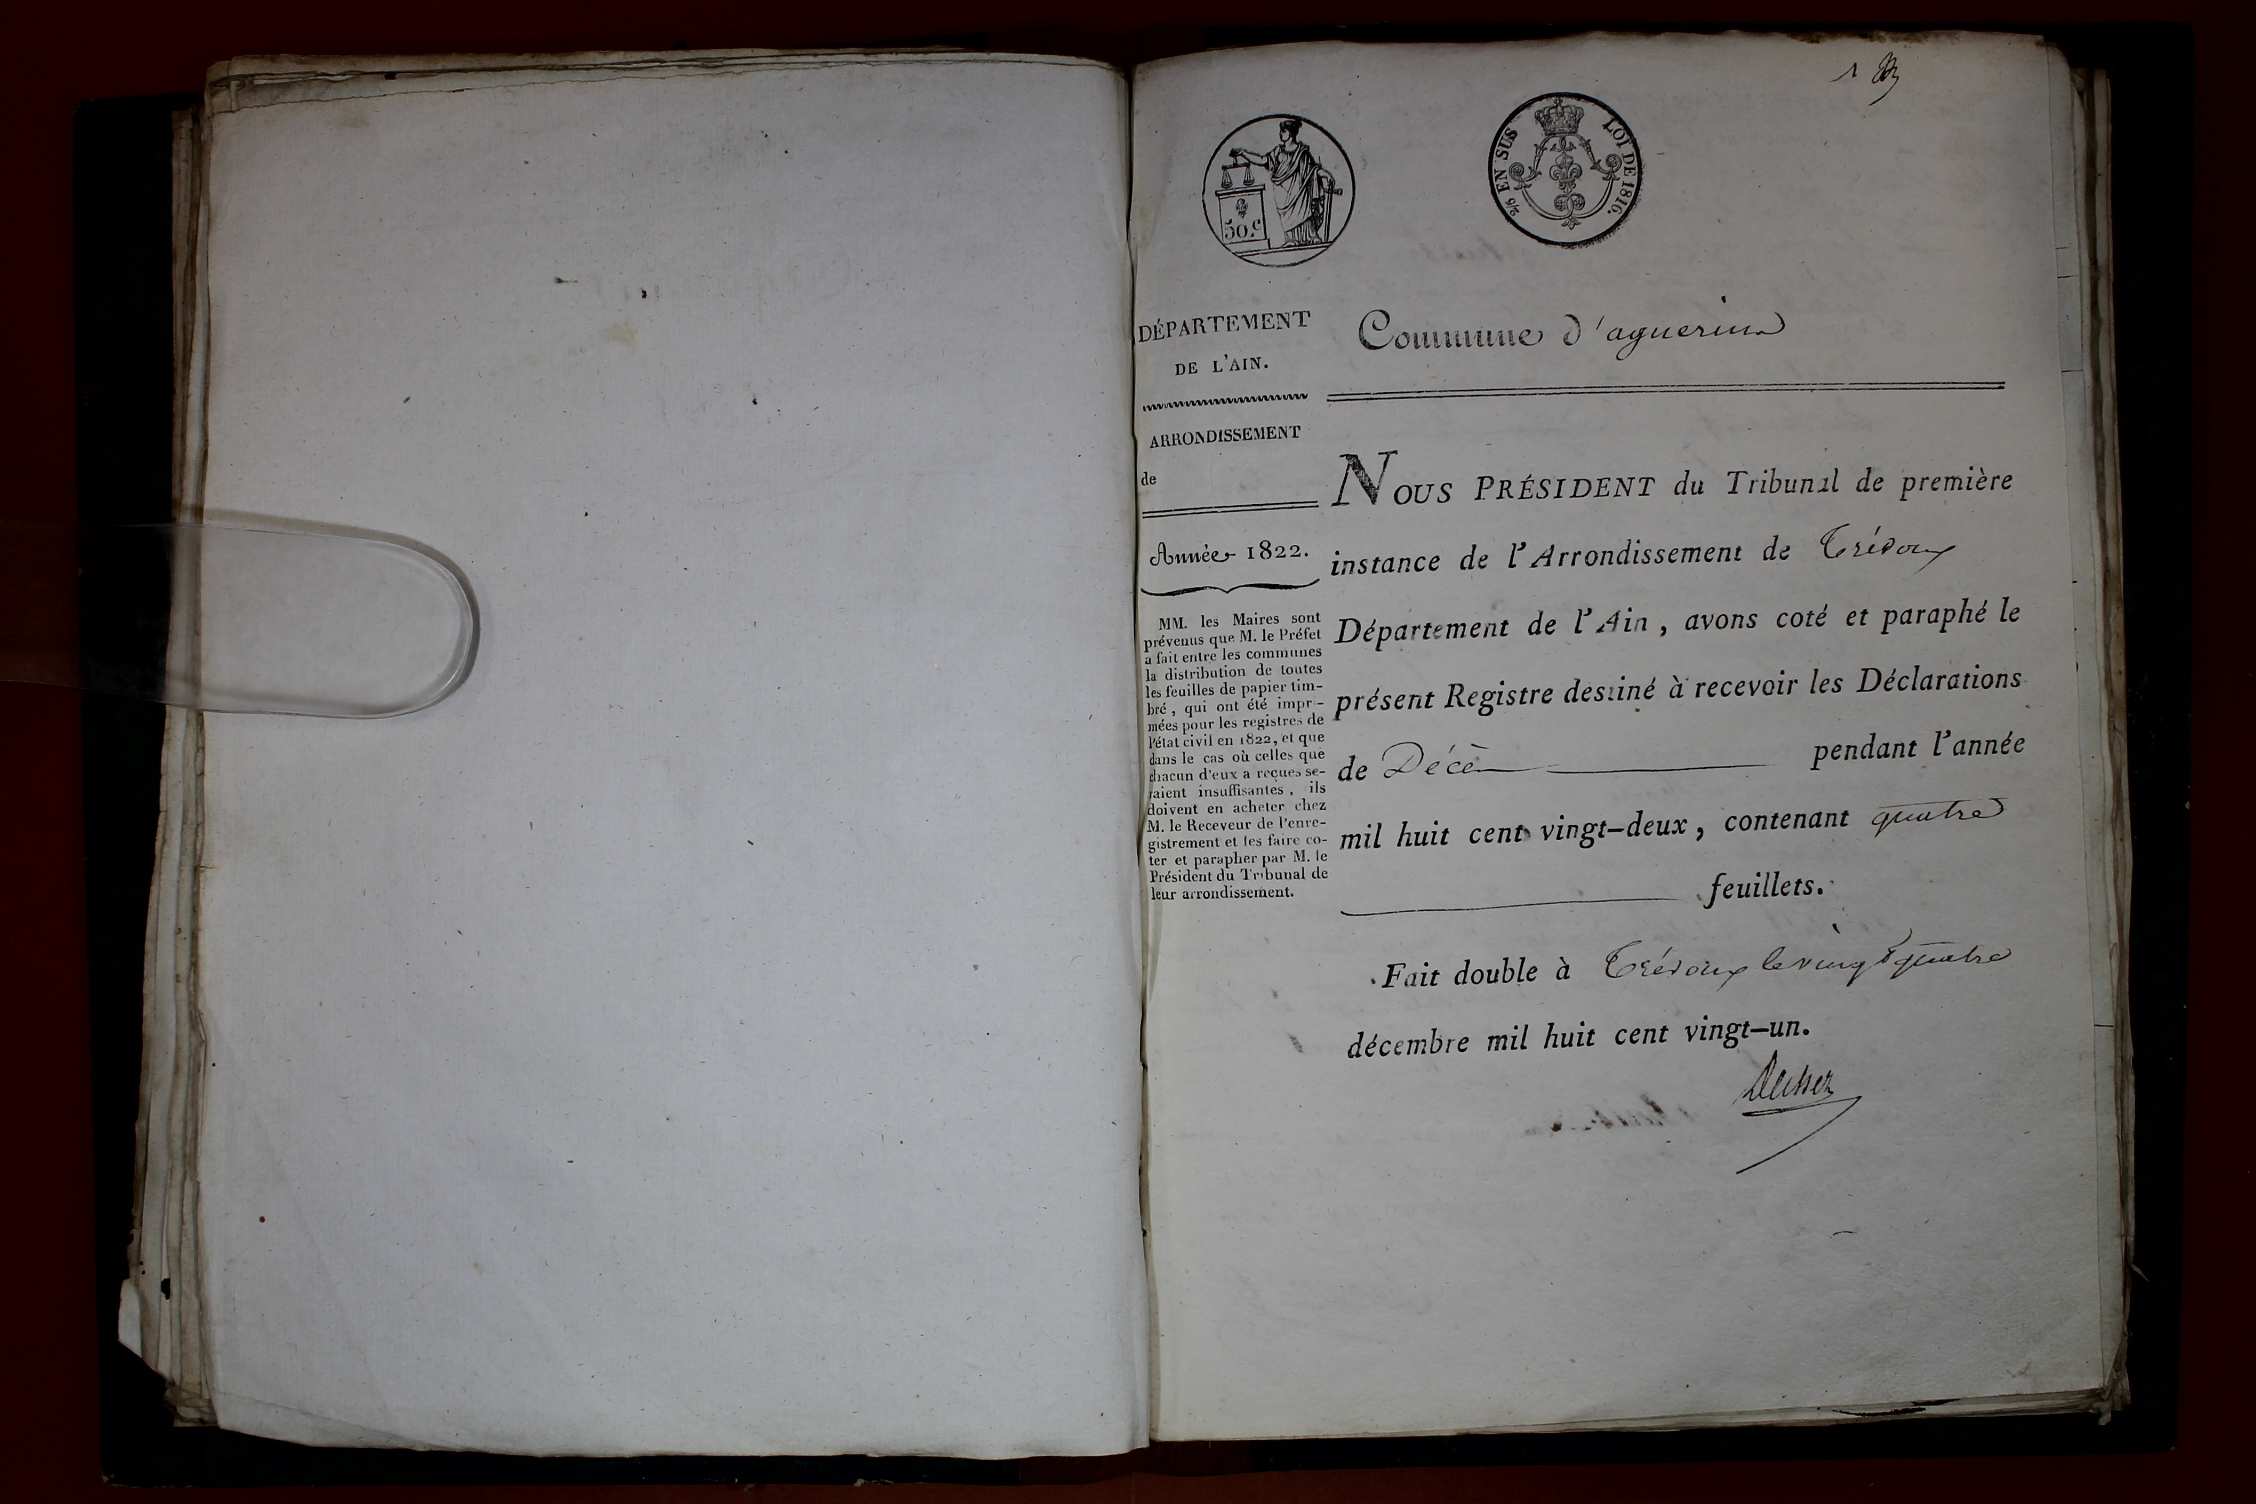 1
50.c
2/6 EN SUS LOI DE 1816.
DÉPARTEMENT
DE L'AIN.
ARRONDISSEMENT
de
Année 1822.
MM. les Maires sont
prévenus que M. le Préfet
a fait entre les communes
la distribution de toutes
les feuilles de papier tim-
bré, qui ont été impri-
mées pour les registres de
l'état civil en 1822, et que
dans le cas où celles que
chacun d'eux a reçues se-
raient insuffisantes, ils
doivent en acheter chez
M. le Receveur de l'enre-
gistrement et les faire co-
ter et parapher par M. le
Président du Tribunal de
leur arrondissement.
Commune d'aguerins
NOUS PRÉSIDENT du Tribunal de première
instance de l'Arrondissement de Trévoux
Département de l'Ain, avons coté et paraphé le
présent Registre destiné à recevoir les Déclarations
de Décès pendant l'année
mil huit cent vingt-deux, contenant quatre
feuillets.
Fait double à Trévoux le vingt quatre
décembre mil huit cent vingt-un.